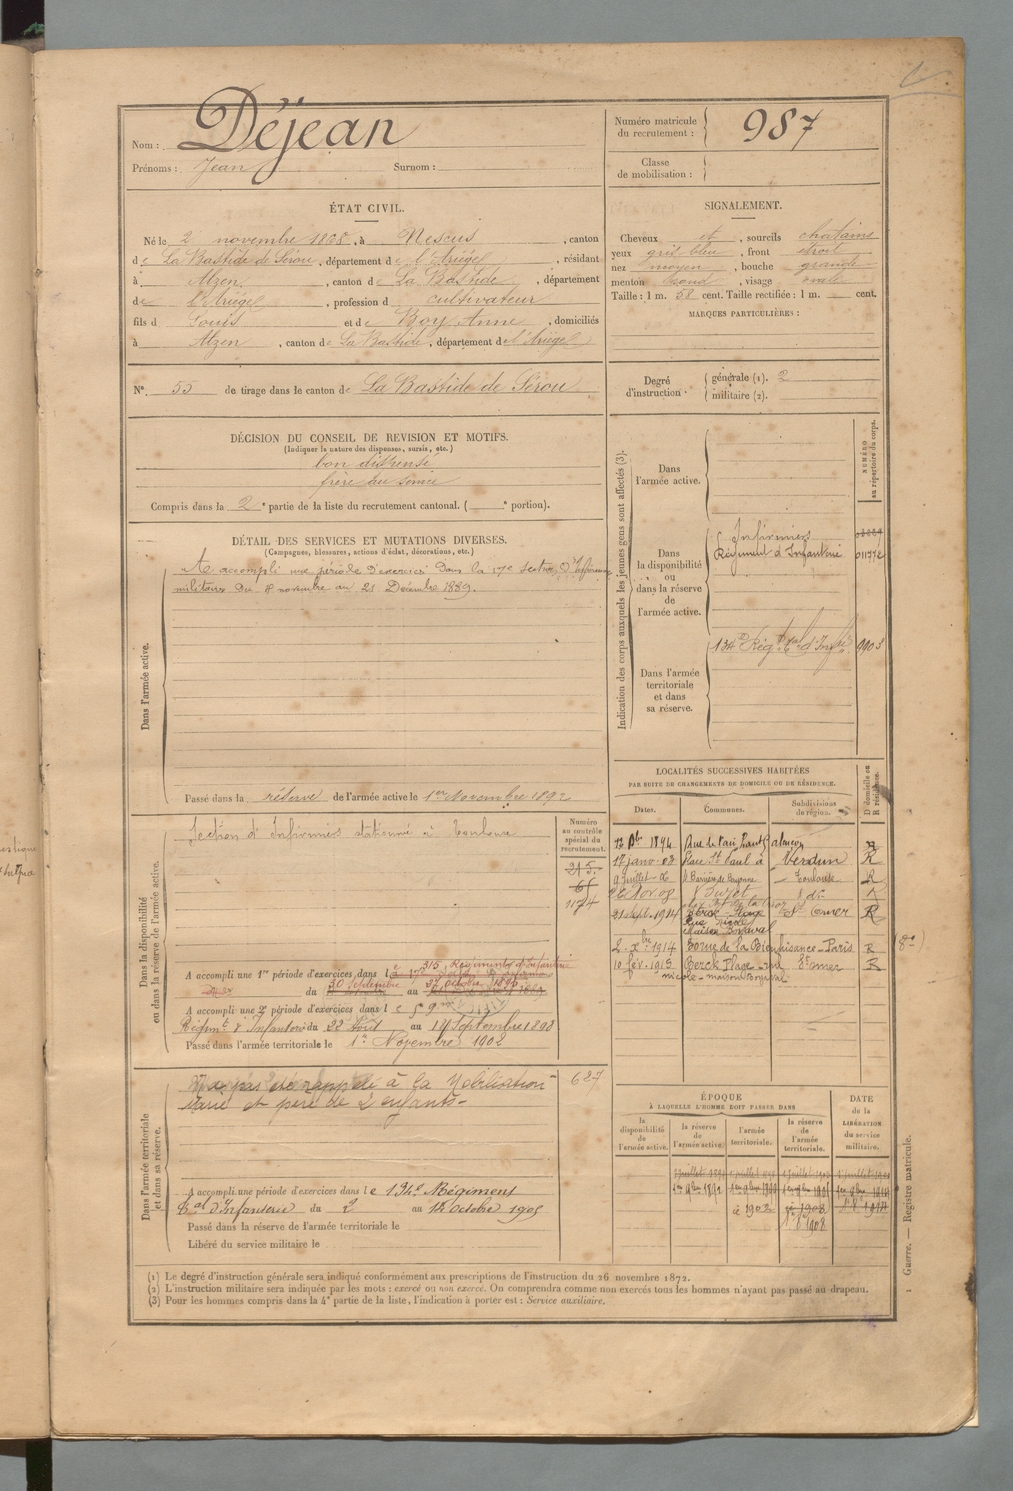 Nom : Déjean
Prénoms : Jean Surnom :
Numéro matricule du recrutement : 987
Classe de mobilisation :
ÉTAT CIVIL.
Né le 2 novembre 1868, à Nescus, canton
de La Bastide de Sérou, département de l'Ariège, résidant
à Alzen, canton de La Bastide, département
de l'Ariège, profession de cultivateur
fils d Louis et de Boy Anne, domiciliés
à Alzen, canton de La Bastide, département de l'Ariège
N° 55 de tirage dans le canton de La Bastide de Sérou
SIGNALEMENT.
Cheveux et, sourcils chatains
yeux gris bleu, front étroit
nez moyen, bouche grande
menton rond, visage ovale
Taille : 1 m. 58 cent. Taille rectifiée : 1 m. cent.
MARQUES PARTICULIÈRES :
Degré d'instruction : générale (1). 2
militaire (2).
DÉCISION DU CONSEIL DE REVISION ET MOTIFS.
(Indiquer la nature des dispenses, sursis, etc.)
bon dispensé
frère au service
Compris dans la 2e partie de la liste du recrutement cantonal. ( e portion).
DÉTAIL DES SERVICES ET MUTATIONS DIVERSES.
(Campagnes, blessures, actions d'éclat, décorations, etc.)
Dans l'armée active.
A accompli une période d'exercices dans la 17e section d'Infirmiers
militaires du 8 novembre au 21 Décembre 1889.
Passé dans la réserve de l'armée active le 1er Novembre 1892
Indication des corps auxquels les jeunes gens sont affectés (3).
NUMÉRO au répertoire du corps.
Dans l'armée active.
Dans la disponibilité ou dans la réserve de l'armée active.
Infirmiers
Régiment d'Infanterie 011772
Dans l'armée territoriale et dans sa réserve.
134e Régt tal d'Infie 9903
Dans la disponibilité ou dans la réserve de l'armée active.
Section d'Infirmiers stationné à Toulouse
Numéro au contrôle spécial du recrutement.
215
61
1174
A accompli une 1re période d'exercices dans le 315 Régiment d'Infanterie
du 30 Septembre au 27 octobre 1896
A accompli une 2e période d'exercices dans le 59
Régimt d'Infanterie du 22 Août au 14 Septembre 1898
Passé dans l'armée territoriale le 1er Novembre 1902
Dans l'armée territoriale et dans sa réserve.
N'a pas été rappelé à la Mobilisation 687
marié et père de 2 enfants
A accompli une période d'exercices dans le 134e Régiment
tal d'Infanterie du 2 au 14 Octobre 1905
Passé dans la réserve de l'armée territoriale le
Libéré du service militaire le
LOCALITÉS SUCCESSIVES HABITÉES
PAR SUITE DE CHANGEMENTS DE DOMICILE OU DE RÉSIDENCE.
Dates. Communes. Subdivisions de région. D domicile ou R résidence.
1894 Alençon R
17 janv. 03 Place St Paul à Verdun R
9 juillet 06 Toulouse R
Nov. 08 Muret do R
21 sept. 1914 Berck-Plage St Omer R
Rue Nicole
Maison Bonaval
2 xbre 1914 Borne de la Bienfaisance Paris R
10 fév. 1915 Berck Plage rue St Omer R
nicole - maison Bonaval
ÉPOQUE
À LAQUELLE L'HOMME DOIT PASSER DANS
la disponibilité de l'armée active.
la réserve de l'armée active.
l'armée territoriale.
la réserve de l'armée territoriale.
DATE de la LIBÉRATION du service militaire.
1er 9bre 1892
1902 1908 1914
1908
(1) Le degré d'instruction générale sera indiqué conformément aux prescriptions de l'instruction du 26 novembre 1872.
(2) L'instruction militaire sera indiquée par les mots : exercé ou non exercé. On comprendra comme non exercés tous les hommes n'ayant pas passé au drapeau.
(3) Pour les hommes compris dans la 4e partie de la liste, l'indication à porter est : Service auxiliaire.
Guerre. — Registre matricule.